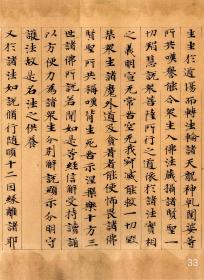 生坐於道場而轉法輪諸天龍神乾闥婆等
所共嘆譽能令眾生入佛法藏攝諸賢聖一
切智慧說眾菩薩所行之道依於諸法實相
之義明宣無常苦空無我寂滅能救一切毀
禁眾生諸魔外道及貪著者能使怖畏諸佛
賢聖所共稱嘆背生死苦示涅槃樂十方三
世諸佛所說若聞如是等經信解受持讀誦
以方便力為諸眾生分別解說顯示分明守
護法故是名法之供養
又於諸法如說脩行隨順十二因緣離諸邪
33